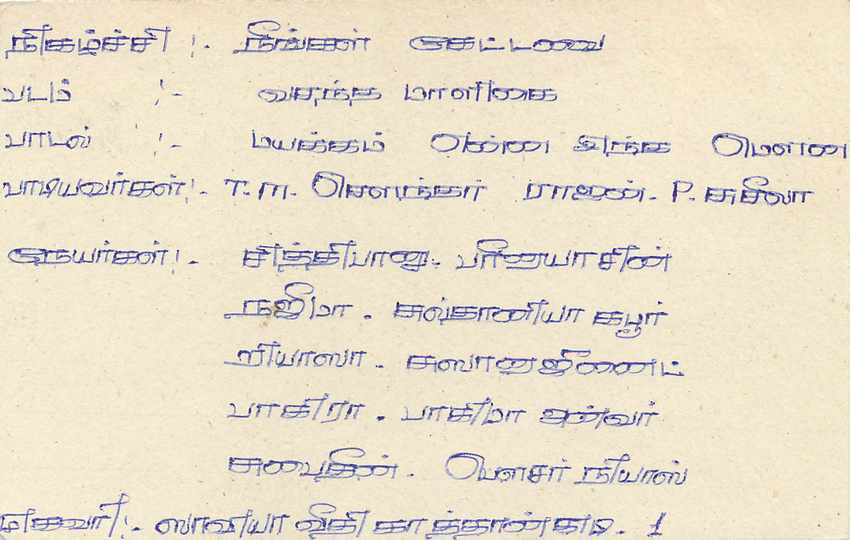 நிகழ்ச்சி :- நீங்கள் கேட்டவை
படம் :- வசந்த மாளிகை
பாடல் :- மயக்கம் என்ன இந்த மௌன
பாடியவர்கள் :- T.M. சௌந்தர் ராஜன். P. சுசீலா
நேயர்கள் :- சித்திபானு. பரீனுயாசின்
நஜீமா. சுல்தானியா கபூர்
றியாஸா.
பாகிரா. பாகிமா அன்வர்
சுபைதீன். பௌசர் நியாஸ்
முகவரி :- ஸாவியா வீதி காத்தான்குடி. 1